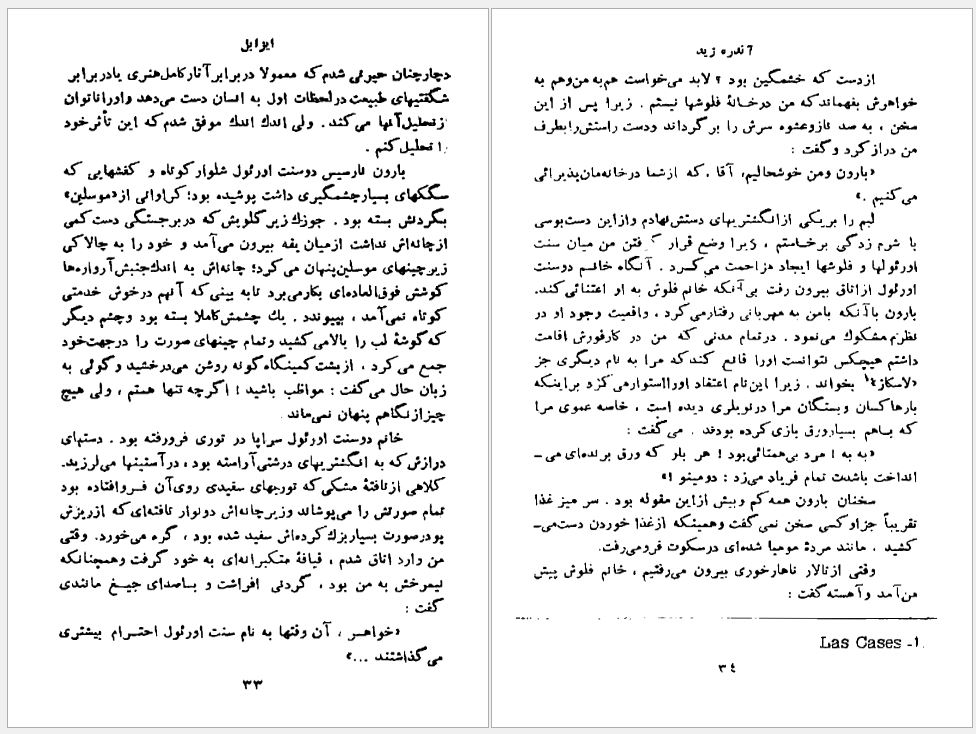 ایزابل
دچارچنان حیرتی شدم که معمولا دربرابر آثارکامل‌هنری یادربرابر
شگفتیهای طبیعت درلحظات اول به انسان دست می‌دهد واوراناتوان
ازتحلیل‌آنها می‌کند . ولی اندك اندك موفق شدم که این تأثرخود
را تحلیل‌کنم .
بارون نارسیس دوسنت اورئول شلوارکوتاه و کفشهایی که
سگکهای بسیارچشمگیری داشت پوشیده بود؛ کراواتی از«موسلین»
بگردنش بسته بود . جوزك زیرگلویش که دربرجستگی دست کمی
ازچانه‌اش نداشت ازمیان یقه بیرون می‌آمد و خود را به چالاکی
زیرچینهای موسلین‌پنهان می‌کرد؛ چانه‌اش به اندك‌جنبش‌آرواره‌ها
کوشش فوق‌العاده‌ای بکارمی‌برد تابه بینی‌که آنهم درخوش خدمتی
کوتاه نمی‌آمد ، بپیوندد . یك چشمش‌کاملا بسته بود وچشم دیگر
که‌گوشهٔ لب را بالامی‌کشید وتمام چینهای صورت را درجهت‌خود
جمع می‌کرد ، ازپشت‌کمینگاه‌گونه روشن می‌درخشید وگوئی به
زبان حال می‌گفت : مواظب باشید ! اگرچه تنها هستم ، ولی هیچ
چیزازنگاهم پنهان نمی‌ماند.
خانم دوسنت اورئول سراپا در توری فرورفته بود . دستهای
درازش‌که به انگشتریهای درشتی‌آراسته بود ، درآستینها می‌لرزید.
کلاهی ازتافتهٔ مشکی‌که توربهای سفیدی روی‌آن فروافتاده بود
تمام صورتش را می‌پوشاند وزیرچانه‌اش دونوار تافته‌ای که ازریزش
پودرصورت بسیاربزك‌کرده‌اش سفید شده بود ، گره می‌خورد. وقتی
من وارد اتاق شدم ، قیافهٔ متکبرانه‌ای به خود گرفت وهمچنانکه
نیمرخش به من بود ، گردنی افراشت و باصدای جیغ مانندی
گفت :
«خواهر ، آن وقتها به نام سنت اورئول احترام بیشتری
می‌گذاشتند ...»
۳۳
آندره ژید
ازدست که خشمگین بود ؟ لابد می‌خواست هم‌به من‌وهم به
خواهرش بفهماندکه من درخانهٔ فلوشها نیستم . زیرا پس از این
سخن ، به صد نازوعشوه سرش را برگرداند ودست راستش‌رابطرف
من درازکرد وگفت :
«بارون ومن خوشحالیم، آقا ،که ازشما درخانه‌مان‌پذیرائی
می‌کنیم .»
لبم را بریکی ازانگشتریهای دستش‌نهادم وازاین دست‌بوسی
با شرم زدگی برخاستم ، زیرا وضع قرار گرفتن من میان سنت
اورئولها و فلوشها ایجاد مزاحمت می‌کرد . آنگاه خانم دوسنت
اورئول ازاتاق بیرون رفت بی‌آنکه خانم فلوش به او اعتنائی‌کند.
بارون باآنکه بامن به مهربانی رفتارمی‌کرد ، واقعیت وجود او در
نظرم مشکوك می‌نمود . درتمام مدتی که من در کارفورش اقامت
داشتم هیچکس نتوانست اورا قانع کندکه مرا به نام دیگری جز
«لاسکاز»۱ بخواند. زیرا این‌نام اعتقاد اورااستوارمی‌کرد براینکه
بارهاکسان وبستگان مرا درتویلری دیده است ، خاصه عموی مرا
که باهم بسیارورق بازی‌کرده بودند . می‌گفت :
«به به ! مرد بی‌همتائی‌بود ! هر بار که ورق برنده‌ای می‌ـ
انداخت باشدت تمام فریاد می‌زد : دومینو !»
سخنان بارون همه‌کم وبیش ازاین مقوله بود . سر میز غذا
تقریباً جزاوکسی سخن نمی‌گفت وهمینکه ازغذا خوردن دست‌می‌ـ
کشید ، مانند مردهٔ مومیا شده‌ای درسکوت فرومی‌رفت.
وقتی ازتالار ناهارخوری بیرون می‌رفتیم ، خانم فلوش پیش
من‌آمد وآهسته‌گفت :
۱- Las Cases
۳۴